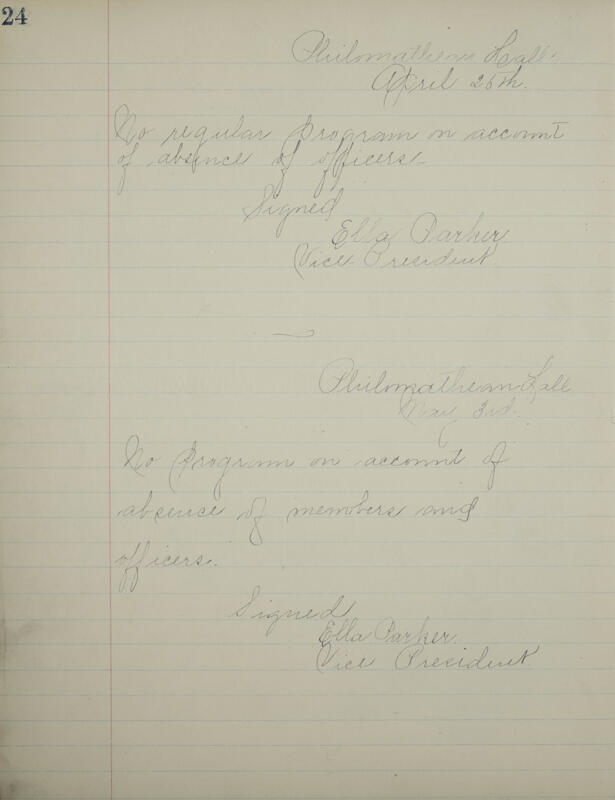 24
Philomathean Hall
April 26th.
No regular Program on account
of absence of officers-
Signed
Ella Parker
Vice President
Philomathean Hall
May 3rd.
No Program on account of
absence of members and
officers.
Signed
Ella Parker.
Vice President